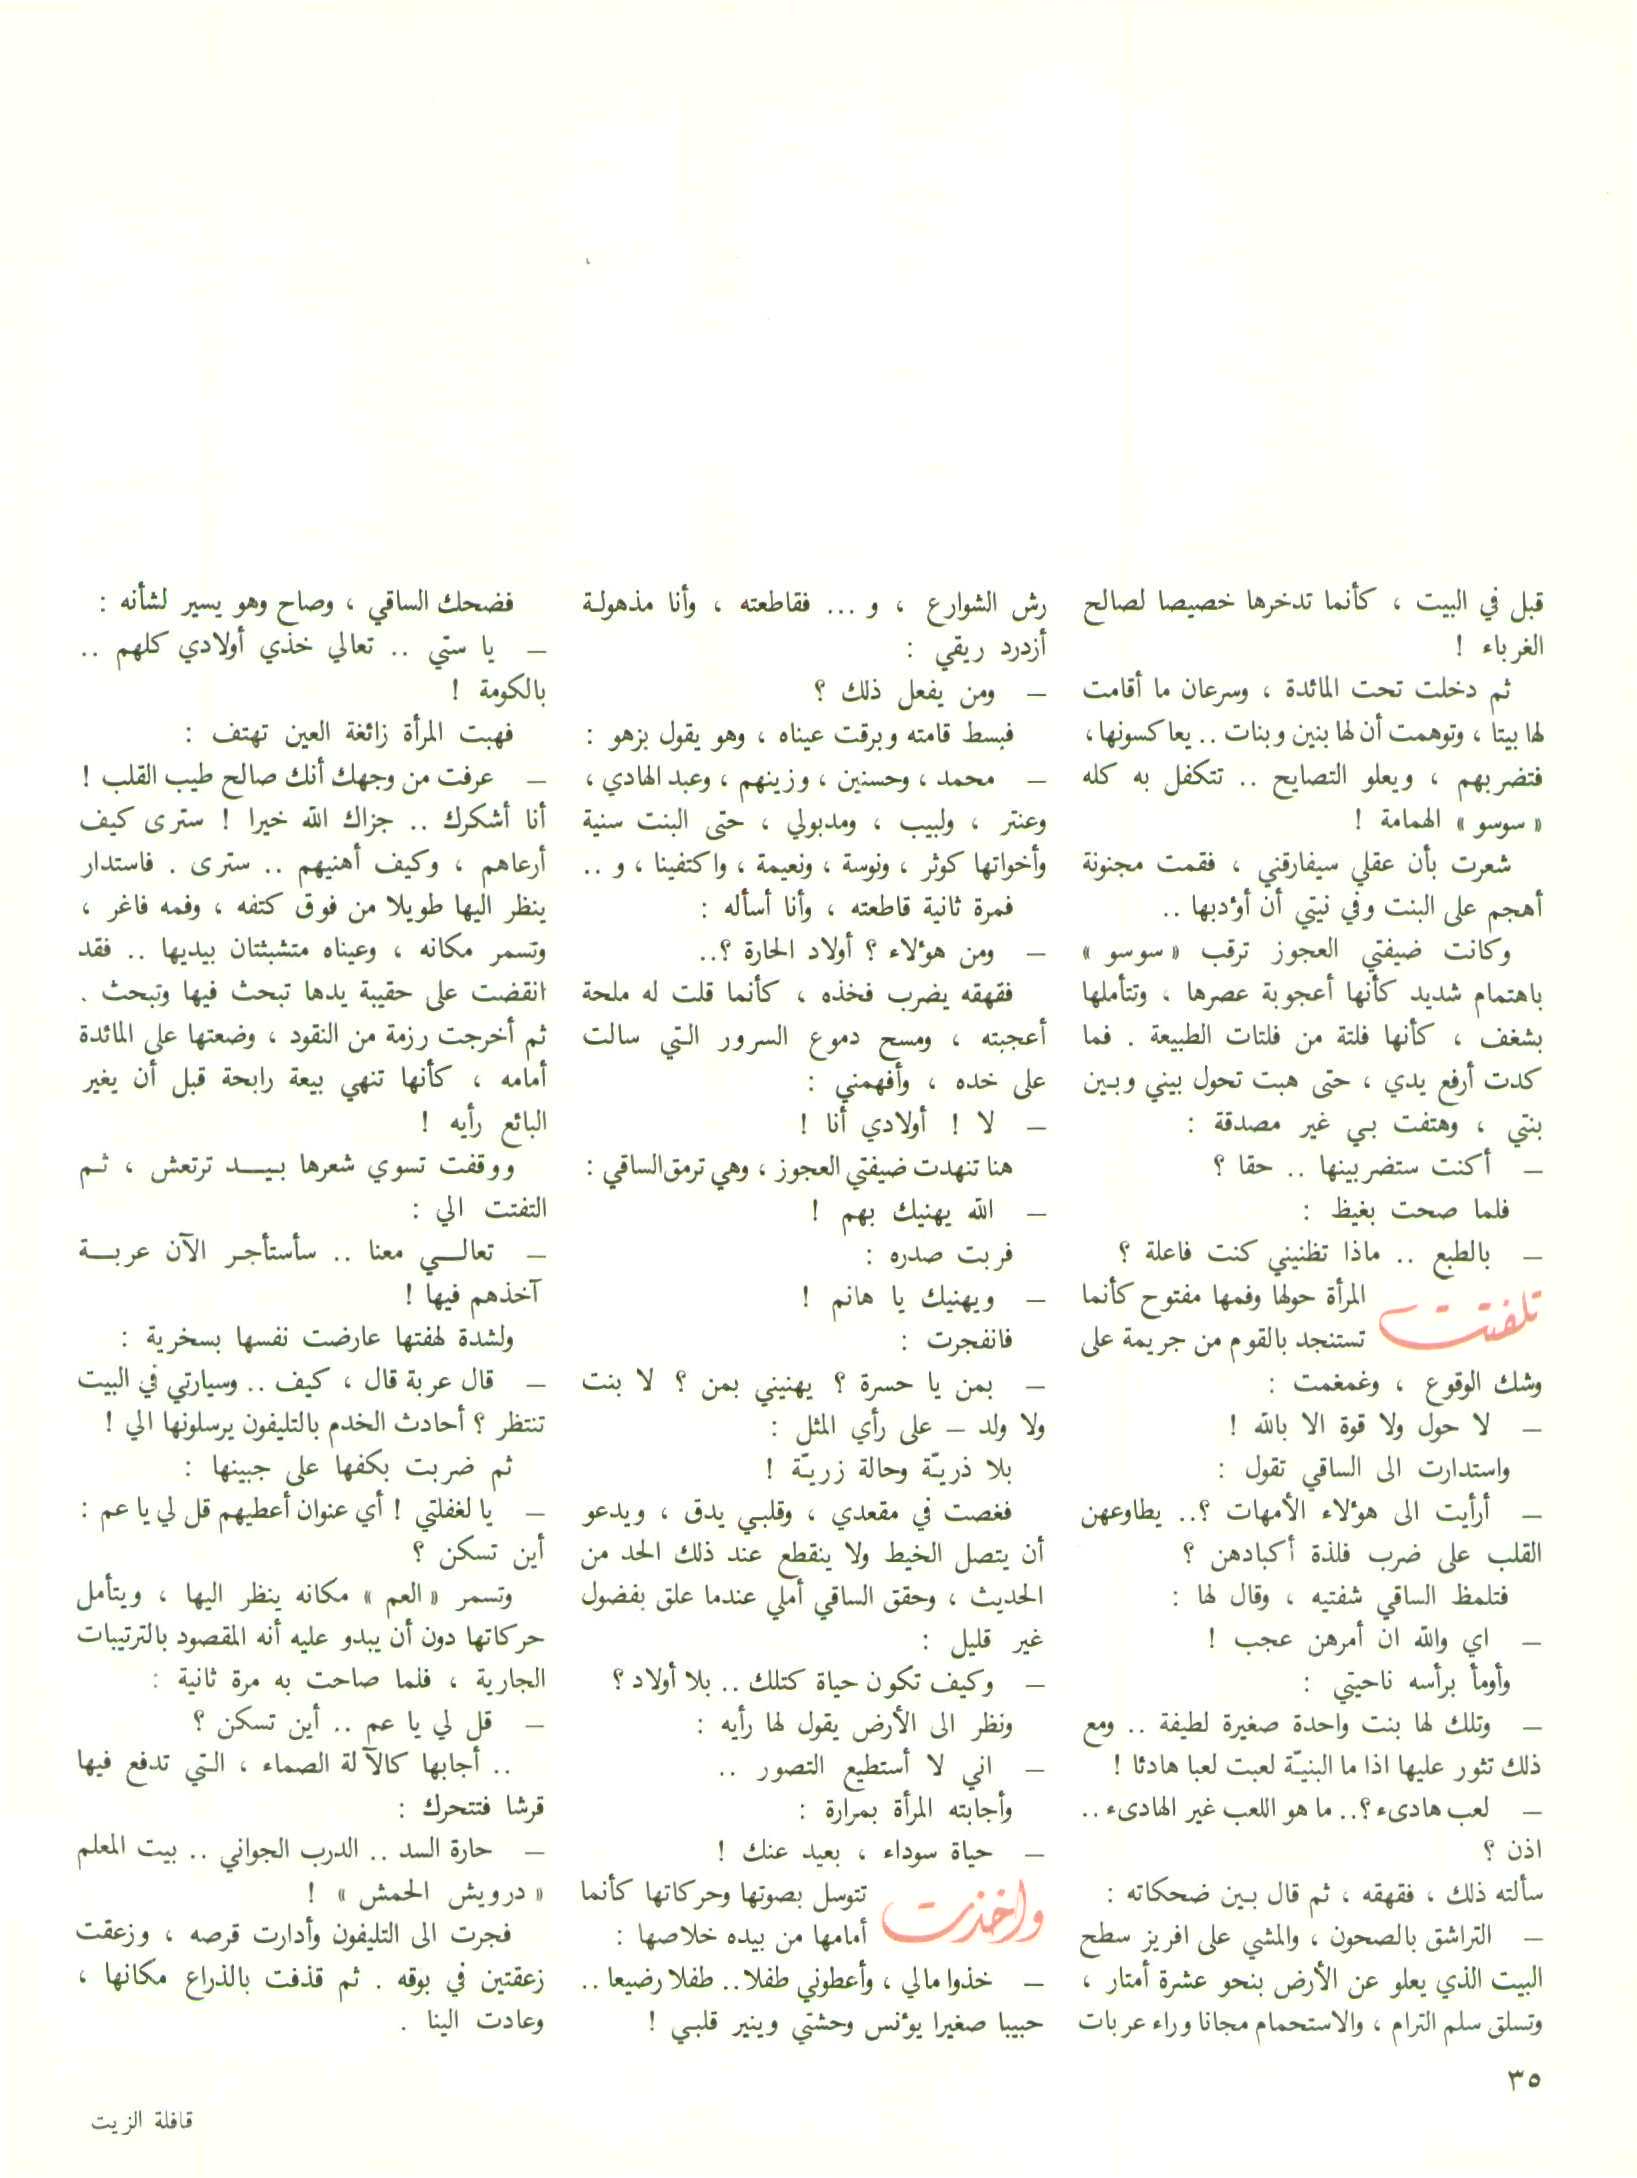 قبل في البيت ، كأنما تدخرها خصيصا لصالح
الغرباء !
ثم دخلت تحت المائدة ، وسرعان ما أقامت
لها بيتا ، وتوهمت أن لها بنين وبنات .. يعاكسونها،
فتضربهم ، ويعلو التصايح .. تتكفل به كله
« سوسو » الهمامة !
شعرت بأن عقلي سيفارقني ، فقمت مجنونة
أهجم على البنت وفي نيتي أن أؤدبها ..
وكانت ضيفتي العجوز ترقب « سوسو »
باهتمام شديد كأنها أعجوبة عصرها ، وتتأملها
بشغف ، كأنها فلتة من فلتات الطبيعة . فما
كدت أرفع يدي ، حتى هبت تحول بيني وبين
بنتي ، وهتفت بي غير مصدقة :
— أكنت ستضربينها .. حقا ؟
فلما صحت بغيظ :
— بالطبع .. ماذا تظنيني كنت فاعلة ؟
تلفتت المرأة حولها وفمها مفتوح كأنما
تستنجد بالقوم من جريمة على
وشك الوقوع ، وغمغمت :
— لا حول ولا قوة الا بالله !
واستدارت الى الساقي تقول :
— أرأيت الى هؤلاء الأمهات ؟.. يطاوعهن
القلب على ضرب فلذة أكبادهن ؟
فتلمظ الساقي شفتيه ، وقال لها :
— اي والله ان أمرهن عجب !
وأومأ برأسه ناحيتي :
— وتلك لها بنت واحدة صغيرة لطيفة .. ومع
ذلك تثور عليها اذا ما البنيّة لعبت لعبا هادئا !
— لعب هادىء ؟.. ما هو اللعب غير الهادىء ..
اذن ؟
سألته ذلك ، فقهقه ، ثم قال بين ضحكاته :
— التراشق بالصحون ، والمشي على افريز سطح
البيت الذي يعلو عن الأرض بنحو عشرة أمتار ،
وتسلق سلم الترام ، والاستحمام مجانا وراء عربات
رش الشوارع ، و ... فقاطعته ، وأنا مذهولة
أزدرد ريقي :
— ومن يفعل ذلك ؟
فبسط قامته وبرقت عيناه ، وهو يقول بزهو :
— محمد ، وحسنين ، وزينهم ، وعبد الهادي ،
وعنتر ، ولبيب ، ومدبولي ، حتى البنت سنية
وأخواتها كوثر ، ونوسة ، ونعيمة ، واكتفينا ، و ..
فمرة ثانية قاطعته ، وأنا أسأله :
— ومن هؤلاء ؟ أولاد الحارة ؟..
فقهقه يضرب فخذه ، كأنما قلت له ملحة
أعجبته ، ومسح دموع السرور التي سالت
على خده ، وأفهمني :
— لا ! أولادي أنا !
هنا تنهدت ضيفتي العجوز ، وهي ترمق الساقي :
— الله يهنيك بهم !
فربت صدره :
— ويهنيك يا هانم !
فانفجرت :
— بمن يا حسرة ؟ يهنيني بمن ؟ لا بنت
ولا ولد — على رأي المثل :
بلا ذريّة وحالة زريّة !
فغصت في مقعدي ، وقلبي يدق ، ويدعو
أن يتصل الخيط ولا ينقطع عند ذلك الحد من
الحديث ، وحقق الساقي أملي عندما علق بفضول
غير قليل :
— وكيف تكون حياة كتلك .. بلا أولاد ؟
ونظر الى الأرض يقول لها رأيه :
— اني لا أستطيع التصور ..
وأجابته المرأة بمرارة :
— حياة سوداء ، بعيد عنك !
واخذت تتوسل بصوتها وحركاتها كأنما
أمامها من بيده خلاصها :
— خذوا مالي ، وأعطوني طفلا .. طفلا رضيعا ..
حبيبا صغيرا يؤنس وحشتي وينير قلبي !
فضحك الساقي ، وصاح وهو يسير لشأنه :
— يا ستي .. تعالي خذي أولادي كلهم ..
بالكومة !
فهبت المرأة زائغة العين تهتف :
— عرفت من وجهك أنك صالح طيب القلب !
أنا أشكرك .. جزاك الله خيرا ! سترى كيف
أرعاهم ، وكيف أهنيهم .. سترى . فاستدار
ينظر اليها طويلا من فوق كتفه ، وفمه فاغر ،
وتسمر مكانه ، وعيناه متشبثتان بيديها .. فقد
انقضت على حقيبة يدها تبحث فيها وتبحث .
ثم أخرجت رزمة من النقود ، وضعتها على المائدة
أمامه ، كأنها تنهي بيعة رابحة قبل أن يغير
البائع رأيه !
ووقفت تسوي شعرها بيد ترتعش ، ثم
التفتت الي :
— تعالي معنا .. سأستأجر الآن عربة
آخذهم فيها !
ولشدة لهفتها عارضت نفسها بسخرية :
— قال عربة قال ، كيف .. وسيارتي في البيت
تنتظر ؟ أحادث الخدم بالتليفون يرسلونها الي !
ثم ضربت بكفها على جبينها :
— يا لغفلتي ! أي عنوان أعطيهم قل لي يا عم :
أين تسكن ؟
وتسمر « العم » مكانه ينظر اليها ، ويتأمل
حركاتها دون أن يبدو عليه أنه المقصود بالترتيبات
الجارية ، فلما صاحت به مرة ثانية :
— قل لي يا عم .. أين تسكن ؟
.. أجابها كالآلة الصماء ، التي تدفع فيها
قرشا فتتحرك :
— حارة السد .. الدرب الجواني .. بيت المعلم
« درويش الحمش » !
فجرت الى التليفون وأدارت قرصه ، وزعقت
زعقتين في بوقه . ثم قذفت بالذراع مكانها ،
وعادت الينا .
٣٥
قافلة الزيت